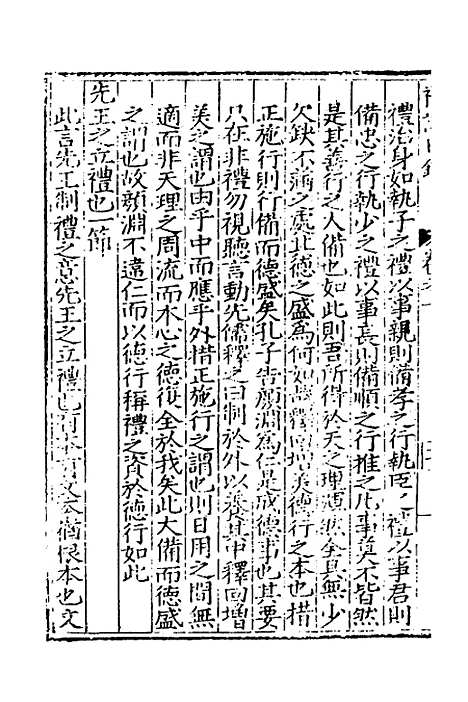 禮治身如執子之禮以事親則備孝之行執臣之禮以事君則
備忠之行執少之禮以事長則備順之行推之凡事莫不皆然
是其善行之大備也如此則吾所得於天之理渾然全具無少
欠缺不滿之處此德之盛為何如與釋回增美德行之本也措
正施行則行備而德盛矣孔子告顏淵為仁是成德事也其要
只在非禮勿視聽言動先儒釋之曰制於外以養其中釋回增
美之謂也由乎中而應乎外措正施行之謂也則日用之間無
適而非天理之周流而本心之德復全於我矣此大備而德盛
之謂也故顏淵不違仁而以德行稱禮之資於德行如此
先王之立禮也一節
此言先王制禮之意先王之立禮也有本有文本猶根本也文